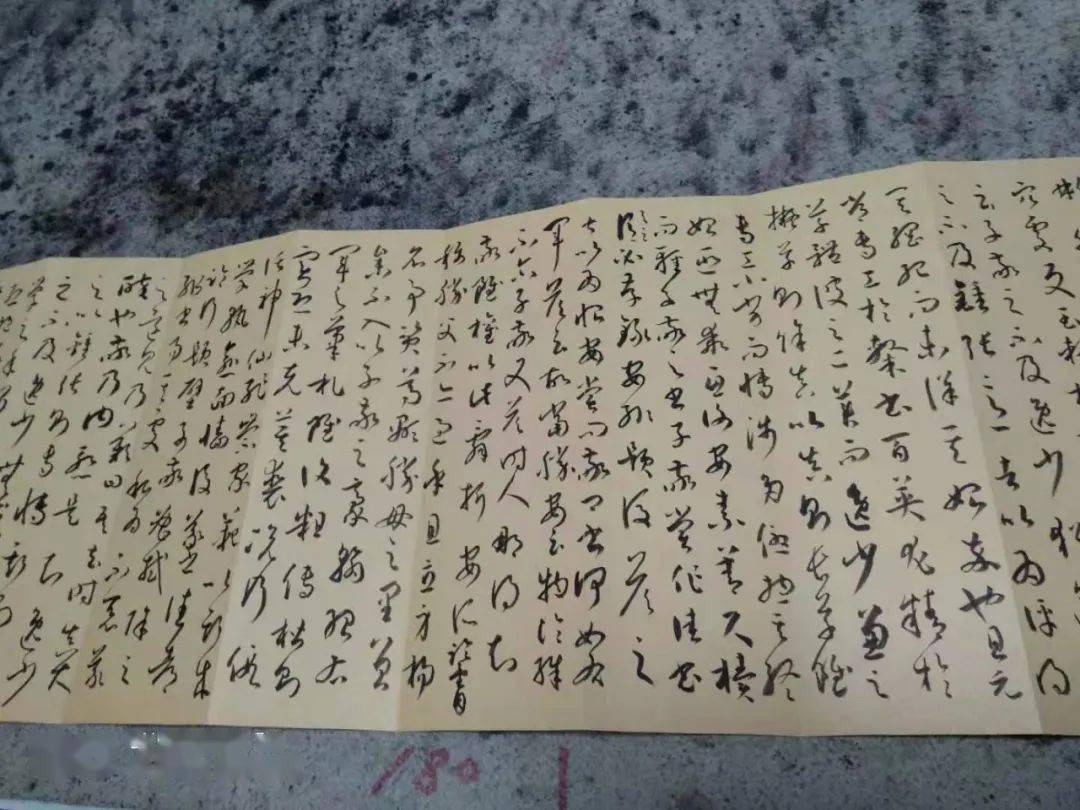 穴處反玉輅
云子敬之不及逸少猶
之不及鍾張意者以為評得
其綱紀而未詳其始卒也且元
常專工於隸書百英尤精於
草體彼之二美而逸少兼之
擬草則餘真比真則長草雖
專工小劣而博涉多優總其終
始匪無乖互謝安素善尺牘
而輕子敬之書子敬嘗作佳書
與之謂必存錄安輒題後答之
甚以為恨安嘗問敬卿書何如右
軍答云故當勝安云物論殊
不尒子敬又答時人那得知
敬雖權以此辭折安所鑒自
稱勝父不亦過乎且立身揚
名事資尊顯勝母之里曾
參不入以子敬之豪翰紹右
軍之筆札雖復粗傳楷則
實恐未克箕裘況乃假
託神仙恥崇家範以斯成
學孰愈面牆後羲之往都
臨行題壁子敬密拭除之
輒書易其處私為不惡羲
之還見乃嘆曰吾去時真大
醉也敬乃內慚是知逸少
之比鍾張則專博斯別子敬
之不及逸少無或疑焉
180